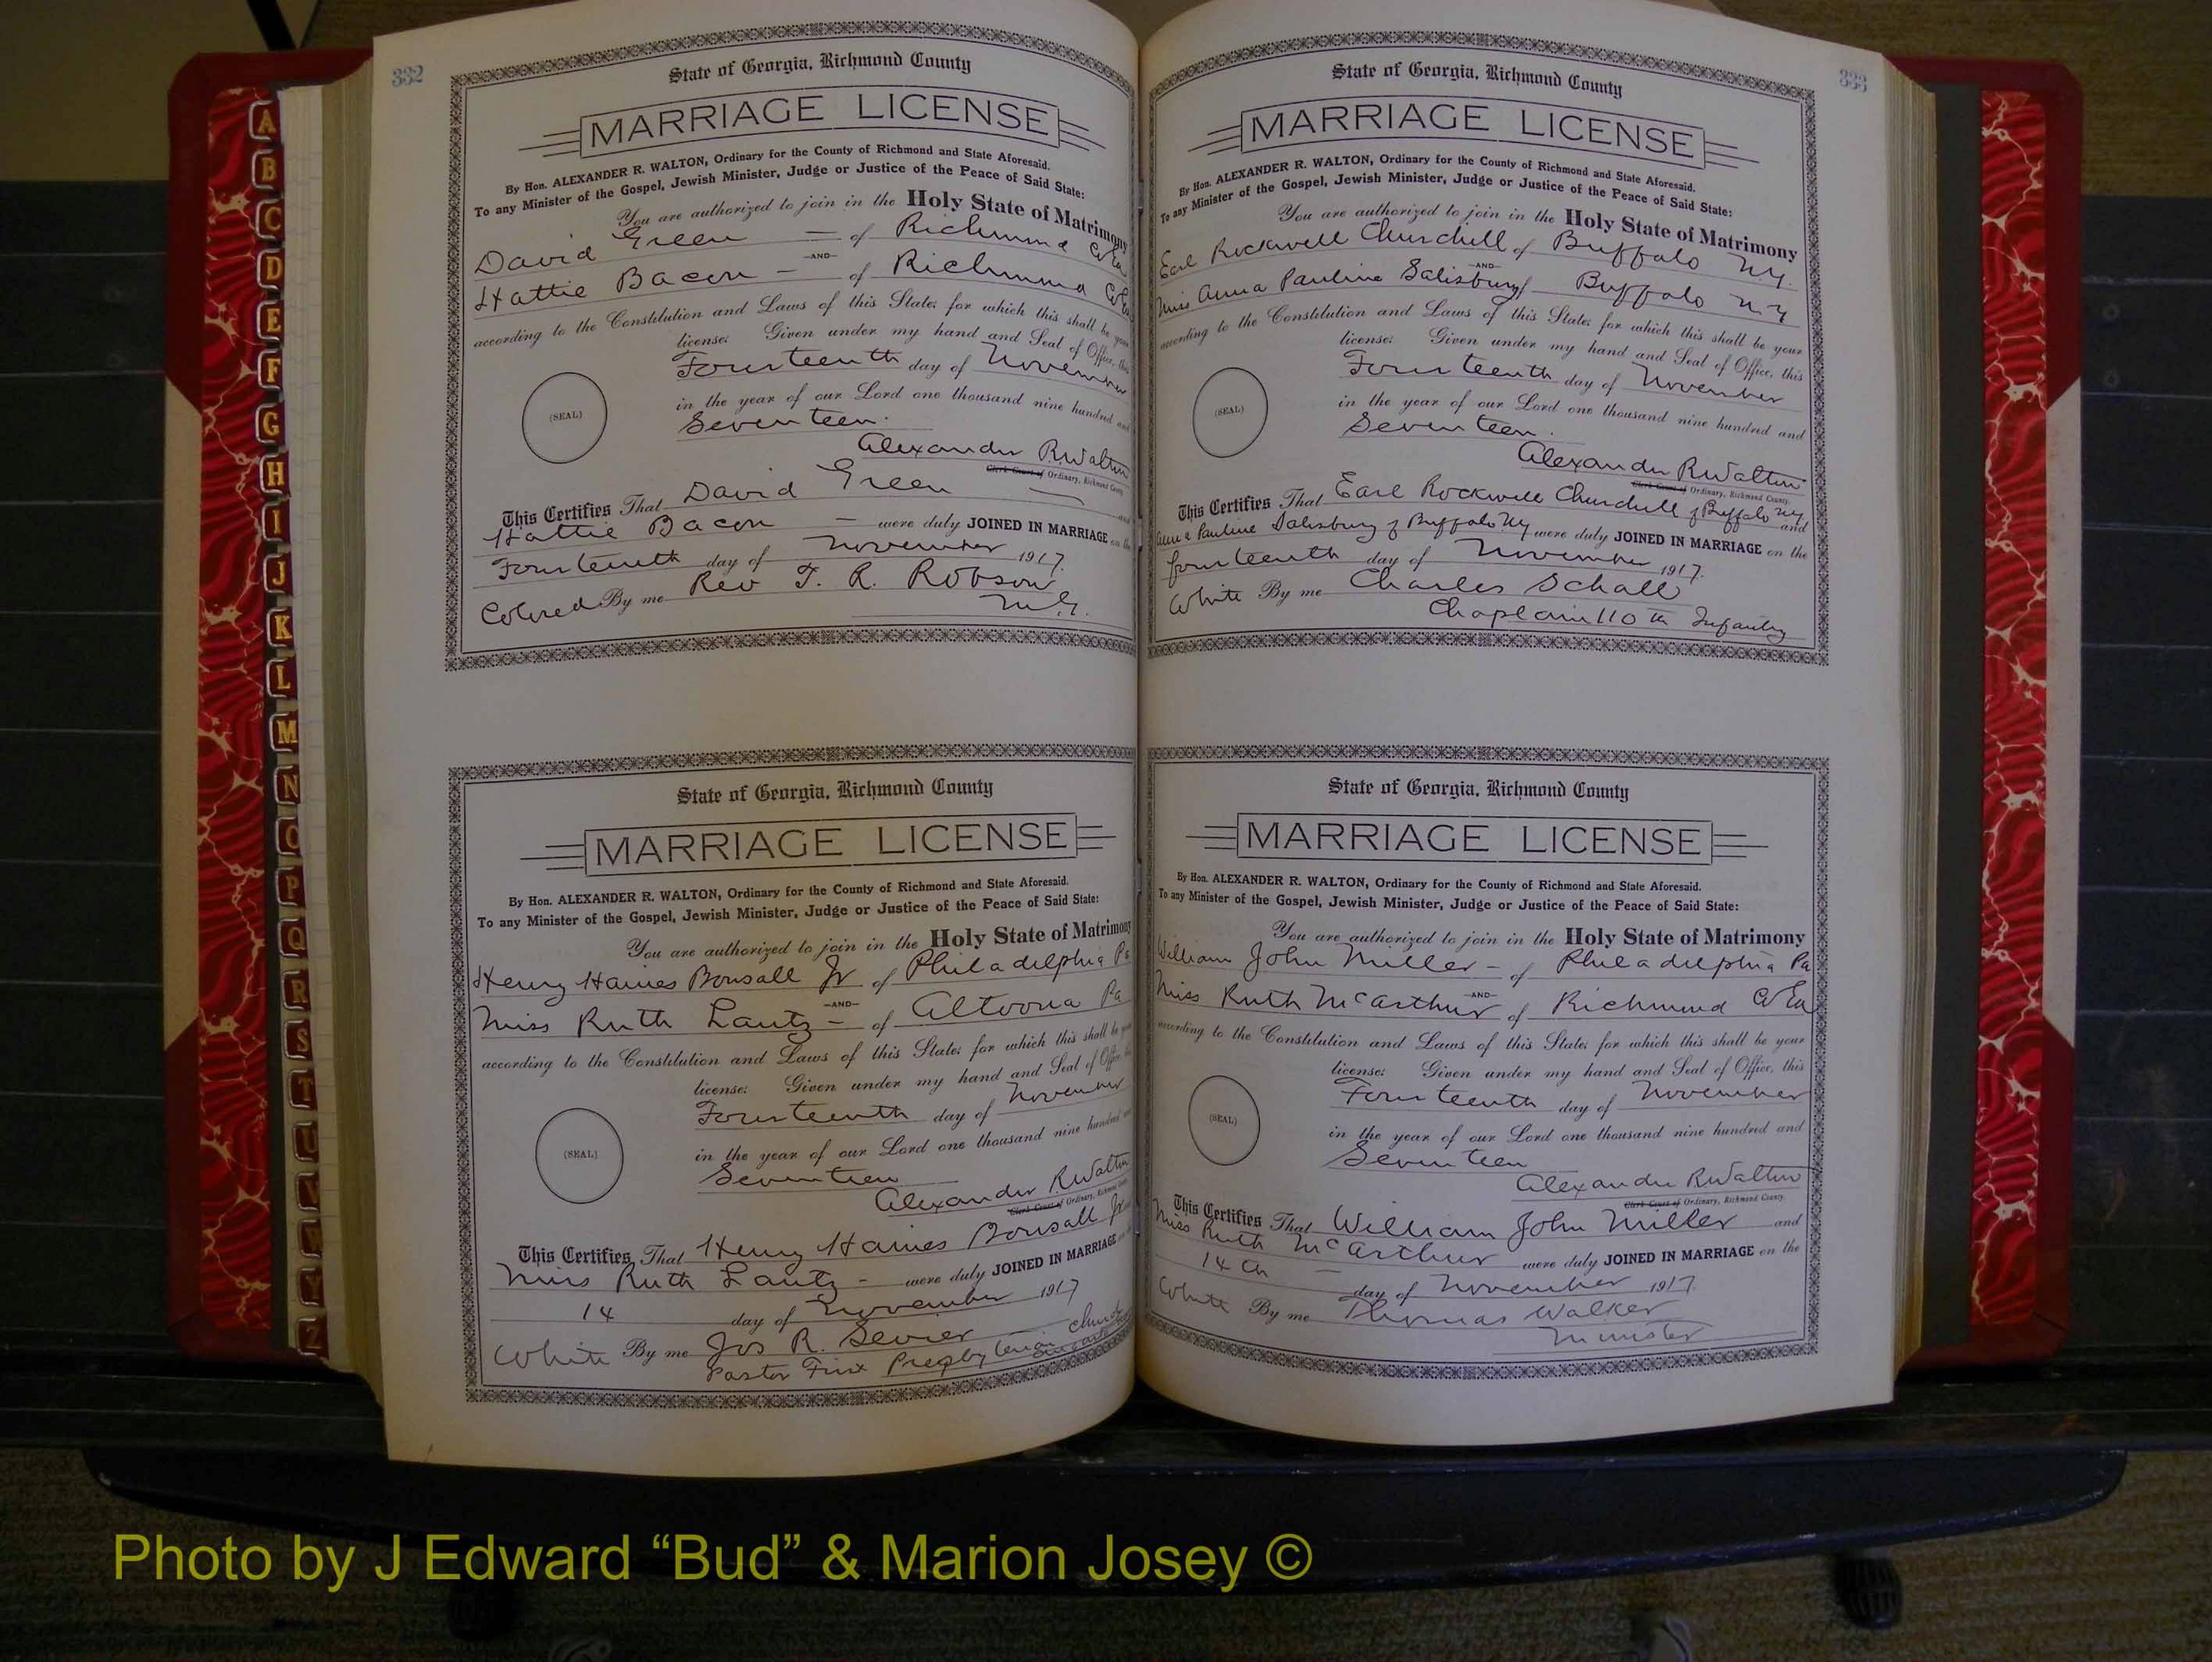 332
State of Georgia, Richmond County
MARRIAGE LICENSE
By Hon. ALEXANDER R. WALTON, Ordinary for the County of Richmond and State Aforesaid.
To any Minister of the Gospel, Jewish Minister, Judge or Justice of the Peace of Said State:
You are authorized to join in the Holy State of Matrimony
David Green — of Richmond Co Ga
—AND—
Hattie Bacon — of Richmond Co Ga
according to the Constitution and Laws of this State; for which this shall be your
license: Given under my hand and Seal of Office, this
Fourteenth day of November
(SEAL)
in the year of our Lord one thousand nine hundred and
Seventeen.
Alexander R Walton
Clerk Court of Ordinary, Richmond County
This Certifies That David Green — and
Hattie Bacon — were duly JOINED IN MARRIAGE on the
Fourteenth day of November 1917.
Colored By me Rev T. R. Robson
M.G.
State of Georgia, Richmond County
MARRIAGE LICENSE
By Hon. ALEXANDER R. WALTON, Ordinary for the County of Richmond and State Aforesaid.
To any Minister of the Gospel, Jewish Minister, Judge or Justice of the Peace of Said State:
You are authorized to join in the Holy State of Matrimony
Henry Haines Bonsall Jr of Philadelphia Pa
—AND—
Miss Ruth Lantz — of Altoona Pa
according to the Constitution and Laws of this State; for which this shall be your
license: Given under my hand and Seal of Office, this
Fourteenth day of November
(SEAL)
in the year of our Lord one thousand nine hundred and
Seventeen
Alexander R Walton
Clerk Court of Ordinary, Richmond County
This Certifies That Henry Haines Bonsall Jr
Miss Ruth Lantz — were duly JOINED IN MARRIAGE
14 day of November 1917
White By me Jos R. Sevier
Pastor First Presbyterian Church
333
State of Georgia, Richmond County
MARRIAGE LICENSE
By Hon. ALEXANDER R. WALTON, Ordinary for the County of Richmond and State Aforesaid.
To any Minister of the Gospel, Jewish Minister, Judge or Justice of the Peace of Said State:
You are authorized to join in the Holy State of Matrimony
Earl Rockwell Churchill of Buffalo N.Y.
—AND—
Miss Anna Pauline Salisbury of Buffalo N.Y
according to the Constitution and Laws of this State; for which this shall be your
license: Given under my hand and Seal of Office, this
Fourteenth day of November
(SEAL)
in the year of our Lord one thousand nine hundred and
Seventeen.
Alexander R Walton
Clerk Court of Ordinary, Richmond County.
This Certifies That Earl Rockwell Churchill of Buffalo NY and
Anna Pauline Salisbury of Buffalo NY were duly JOINED IN MARRIAGE on the
fourteenth day of November 1917.
White By me Charles Schall
Chaplain 110th Infantry
State of Georgia, Richmond County
MARRIAGE LICENSE
By Hon. ALEXANDER R. WALTON, Ordinary for the County of Richmond and State Aforesaid.
To any Minister of the Gospel, Jewish Minister, Judge or Justice of the Peace of Said State:
You are authorized to join in the Holy State of Matrimony
William John Miller — of Philadelphia Pa
—AND—
Miss Ruth McArthur of Richmond Co Ga
according to the Constitution and Laws of this State; for which this shall be your
license: Given under my hand and Seal of Office, this
Fourteenth day of November
(SEAL)
in the year of our Lord one thousand nine hundred and
Seventeen
Alexander R Walton
Clerk Court of Ordinary, Richmond County.
This Certifies That William John Miller and
Miss Ruth McArthur were duly JOINED IN MARRIAGE on the
14th — day of November 1917.
White By me Thomas Walker
Minister
A
B
C
D
E
F
G
H
I
J
K
L
M
N
O
P
Q
R
S
T
U
V
W
Y
Z
Photo by J Edward “Bud” & Marion Josey ©